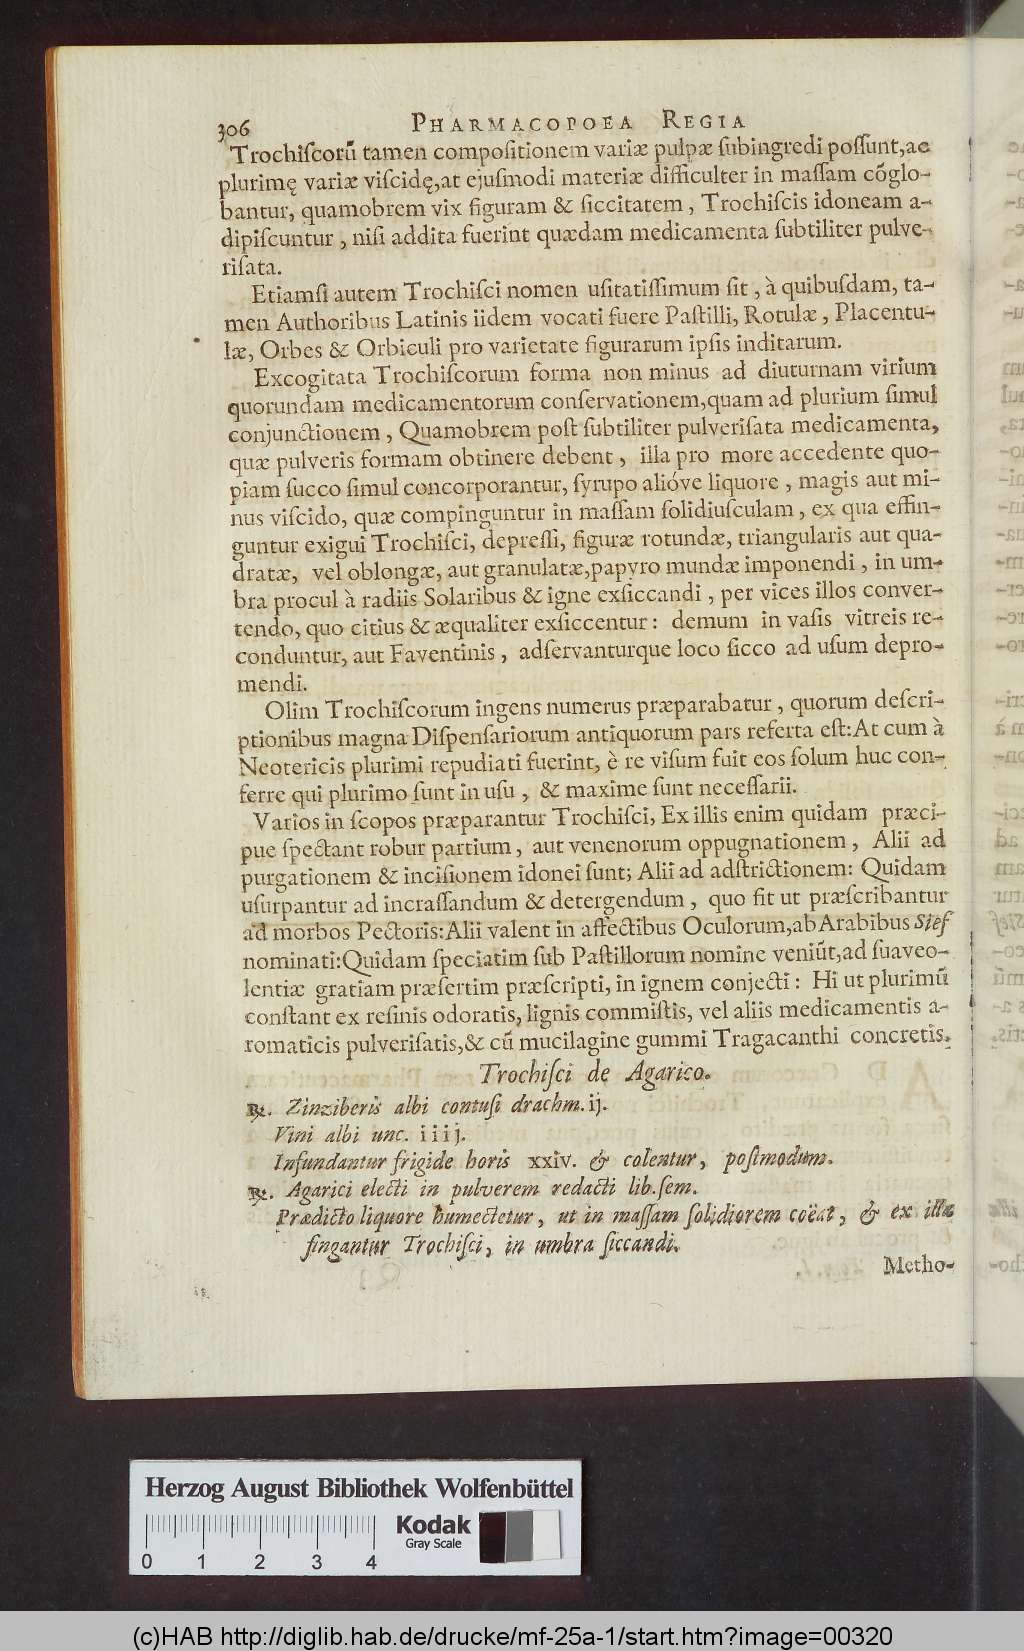 306 PHARMACOPOEA REGIA
Trochiſcorũ tamen compoſitionem variæ pulpæ ſubingredi poſſunt,ac
plurimę variæ viſcidę,at ejuſmodi materiæ difficulter in maſſam cõglo-
bantur, quamobrem vix figuram & ſiccitatem, Trochiſcis idoneam a-
dipiſcuntur, niſi addita fuerint quædam medicamenta ſubtiliter pulve-
riſata.
Etiamſi autem Trochiſci nomen uſitatiſſimum ſit, à quibuſdam, ta-
men Authoribus Latinis iidem vocati fuere Paſtilli, Rotulæ, Placentu-
læ, Orbes & Orbiculi pro varietate figurarum ipſis inditarum.
Excogitata Trochiſcorum forma non minus ad diuturnam virium
quorundam medicamentorum conſervationem,quam ad plurium ſimul
conjunctionem, Quamobrem poſt ſubtiliter pulveriſata medicamenta,
quæ pulveris formam obtinere debent, illa pro more accedente quo-
piam ſucco ſimul concorporantur, ſyrupo alióve liquore, magis aut mi-
nus viſcido, quæ compinguntur in maſſam ſolidiuſculam, ex qua effin-
guntur exigui Trochiſci, depreſſi, figuræ rotundæ, triangularis aut qua-
dratæ, vel oblongæ, aut granulatæ,papyro mundæ imponendi, in um-
bra procul à radiis Solaribus & igne exſiccandi, per vices illos conver-
tendo, quo citius & æqualiter exſiccentur: demum in vaſis vitreis re-
conduntur, aut Faventinis, adſervanturque loco ſicco ad uſum depro-
mendi.
Olim Trochiſcorum ingens numerus præparabatur, quorum deſcri-
ptionibus magna Diſpenſariorum antiquorum pars referta eſt:At cum à
Neotericis plurimi repudiati fuerint, è re viſum fuit eos ſolum huc con-
ferre qui plurimo ſunt in uſu, & maxime ſunt neceſſarii.
Varios in ſcopos præparantur Trochiſci, Ex illis enim quidam præci-
pue ſpectant robur partium, aut venenorum oppugnationem, Alii ad
purgationem & inciſionem idonei ſunt; Alii ad adſtrictionem: Quidam
uſurpantur ad incraſſandum & detergendum, quo fit ut præſcribantur
ad morbos Pectoris:Alii valent in affectibus Oculorum,ab Arabibus Sief
nominati:Quidam ſpeciatim ſub Paſtillorum nomine veniũt,ad ſuaveo-
lentiæ gratiam præſertim præſcripti, in ignem conjecti: Hi ut plurimũ
conſtant ex reſinis odoratis, lignis commiſtis, vel aliis medicamentis a-
romaticis pulveriſatis,& cũ mucilagine gummi Tragacanthi concretis.
Trochiſci de Agarico.
℞. Zinziberis albi contuſi drachm. ij.
Vini albi unc. iiij.
Infundantur frigide horis xxiv. & colentur, poſtmodum.
℞. Agarici electi in pulverem redacti lib. ſem.
Prædicto liquore humectetur, ut in maſſam ſolidiorem coëat, & ex illa
fingantur Trochiſci, in umbra ſiccandi.
Metho-
Herzog August Bibliothek Wolfenbüttel
0 1 2 3 4
Kodak
Gray Scale
(c)HAB http://diglib.hab.de/drucke/mf-25a-1/start.htm?image=00320